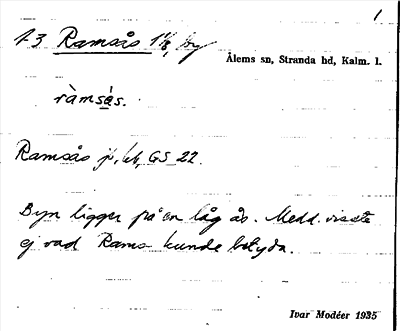 1
13 Ramsås 1 1/8, by
Ålems sn, Stranda hd, Kalm. l.
ràmsås.
Ramsås jb, kb, GS 22.
Byn ligger på en låg ås. Medd. visste
ej vad Rams- kunde betyda.
Ivar Modéer 1935